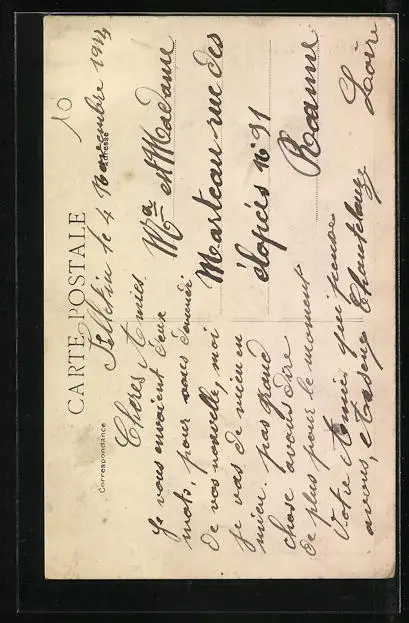 10
CARTE POSTALE
Correspondance
Adresse
Felletin le 4 Novembre 1914
Chères Amies
Je vous envoient deux
mots, pour vous donner
de vos nouvelle, moi
je vas de mieu en
mieu. pas grand
chose a vous dire
de plus pour le moment
Votre Amies qui pense
a vous,
Mr et Madame
Marteau rue des
N° 91
Roanne
Loire